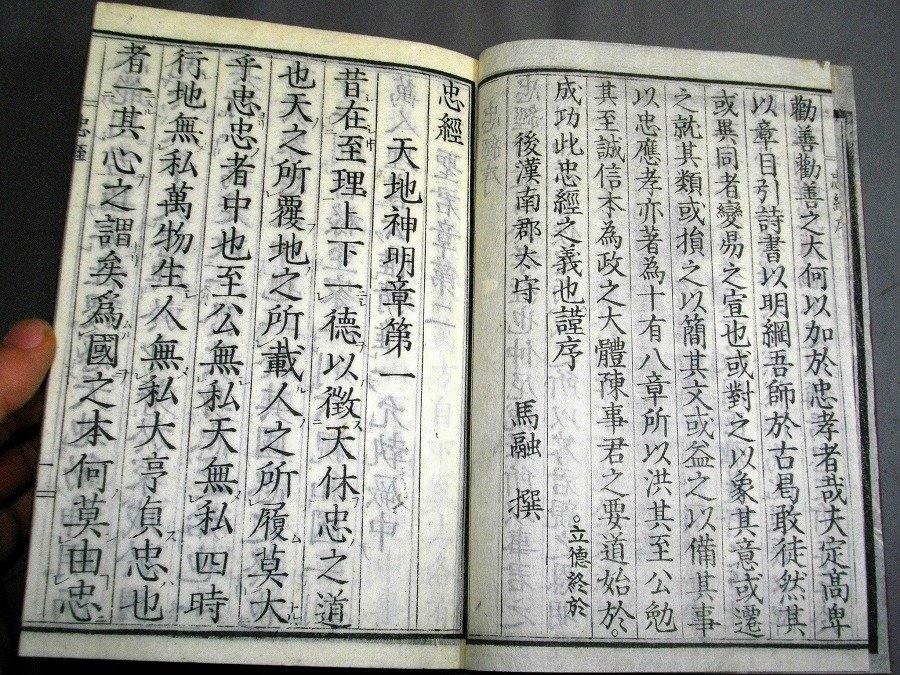 勸善勸善之大何以加於忠孝者哉夫定髙卑
以章目引詩書以明綱吾師於古曷敢徒然其
或異同者變易之宣也或對之以象其意或遷
之就其類或損之以簡其文或益之以備其事
以忠應孝亦著為十有八章所以洪其至公勉
其至誠信本為政之大體陳事君之要道始於。
。立德終於
成功此忠經之義也謹序
後漢南郡太守 馬融 撰
忠經
天地神明章第一
昔在至理上下一德以徴天休忠之道
也天之所覆地之所載人之所履莫大
乎忠忠者中也至公無私天無私四時
行地無私萬物生人無私大亨貞忠也
者一其心之謂矣爲國之本何莫由忠
忠經